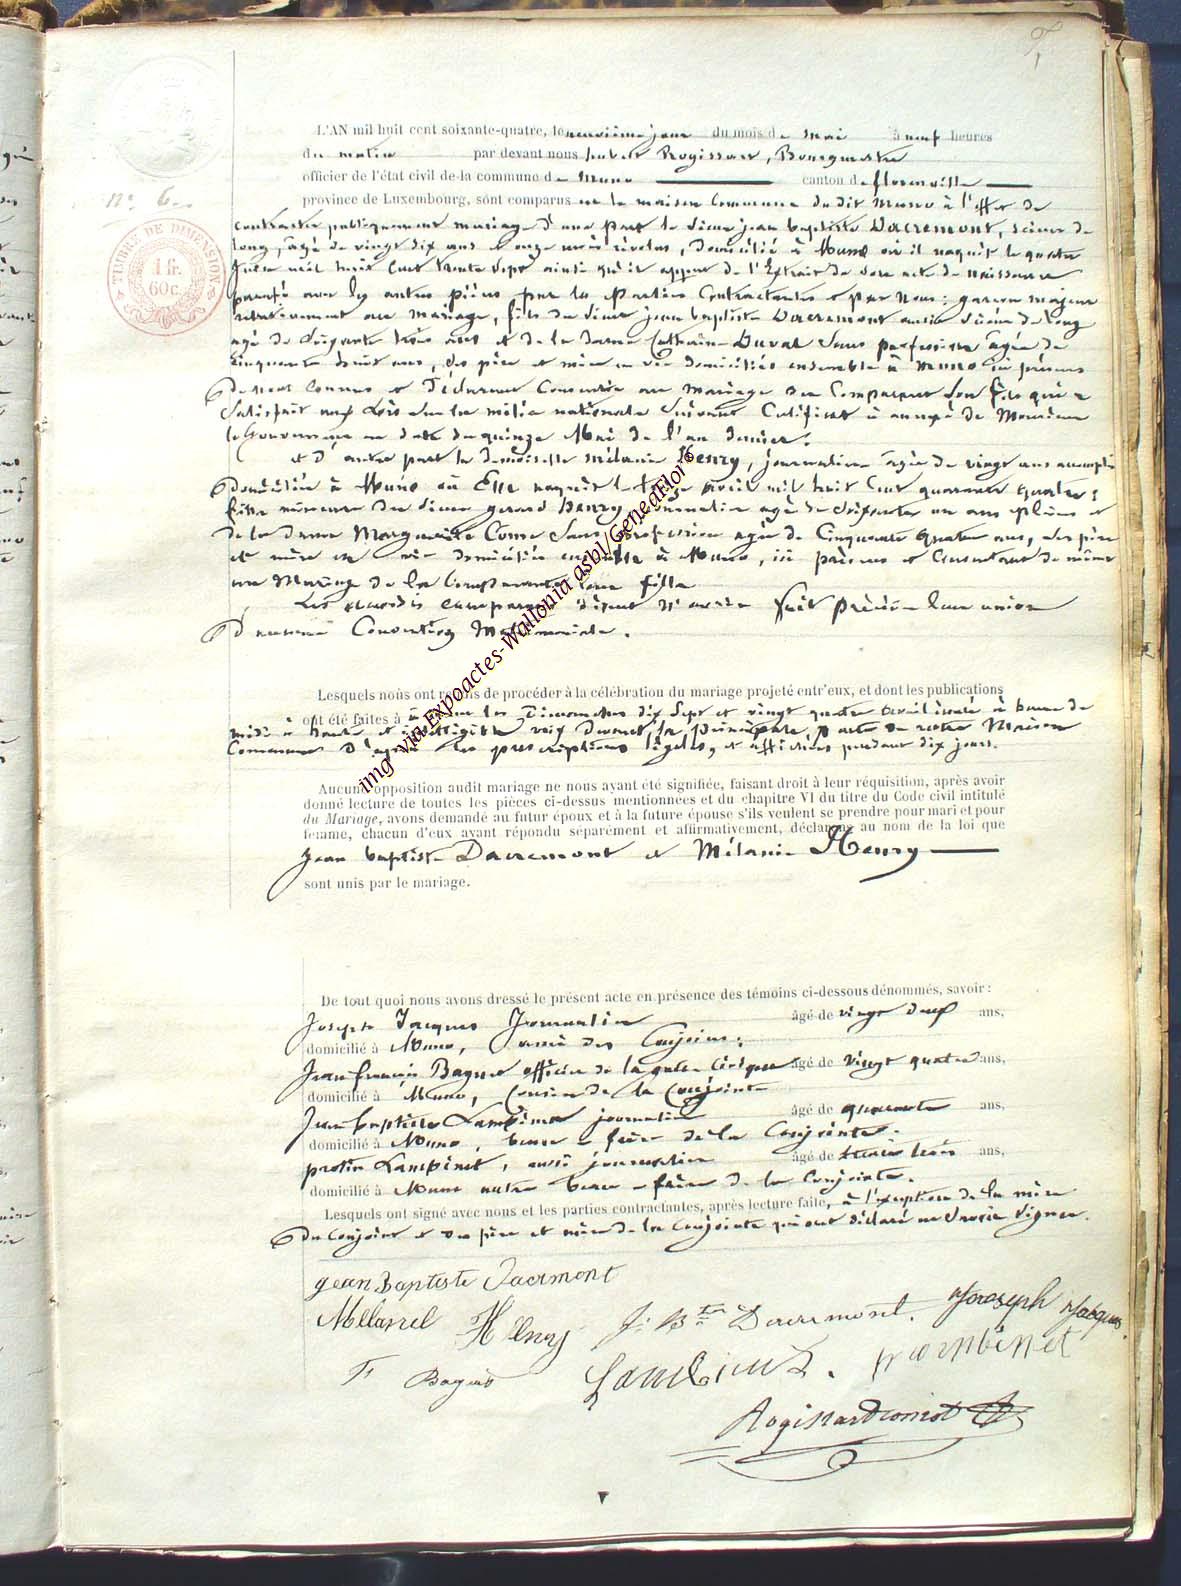 N° 6.
TIMBRE DE DIMENSION
1 fr.
60c.
L'AN mil huit cent soixante-quatre, le neuvième jour du mois de Mai à neuf heures
du matin par devant nous hubert Rogissart, Bourgmestre
officier de l'état civil de la commune de Muno canton de florenville
province de Luxembourg, sont comparus en la maison Commune du dit Muno à l'effet de
contracter publiquement mariage d'une part le sieur jean baptiste Dacremont, scieur de
long, agé de vingt six ans et onze mois révolus, domicilié à Muno où il naquit le quatre
Juin mil huit cent trente sept ainsi qu'il appert de l'Extrait de son acte de naissance
paraphé avec les autres pièces par les Parties Contractantes et par Nous ; garçon majeur
relativement au mariage, fils du sieur jean baptiste Dacremont aussi scieur de long
agé de soixante trois ans et de la dame Catherine Duval sans profession agée de
cinquante huit ans, ses père et mère en vie domiciliés ensemble à Muno ici présents
de nous connus et déclarant Consentir au mariage du Comparant leur fils qui a
satisfait aux Lois sur la milice nationale suivant Certificat à annexé de Monsieur
le Gouverneur en date du quinze Mai de l'an dernier.
et d'autre part la demoiselle Mélanie Henry, journalière agée de vingt ans accomplis
domiciliée à Muno où Elle naquit le treize avril mil huit cent quarante quatre ;
fille mineure du sieur gérard Henry journalier agé de soixante un ans pleins et
de la dame Marguerite Come sans profession agée de Cinquante quatre ans, ses père
et mère en vie domiciliés ensemble à Muno, ici présens et Consentant de même
au Mariage de la Comparante leur fille
Les susdits comparants disent n'avoir fait précéder leur union
d'aucune Convention Matrimoniale.
Lesquels nous ont requis de procéder à la célébration du mariage projeté entr'eux, et dont les publications
ont été faites à Muno les Dimanches dix sept et vingt quatre avril écoulé à heure de
midi à haute et intelligible voix devant la principale porte de notre Maison
Commune d'après les prescriptions légales, et affichées pendant dix jours.
Aucune opposition audit mariage ne nous ayant été signifiée, faisant droit à leur réquisition, après avoir
donné lecture de toutes les pièces ci-dessus mentionnées et du chapitre VI du titre du Code civil intitulé
du Mariage, avons demandé au futur époux et à la future épouse s'ils veulent se prendre pour mari et pour
femme, chacun d'eux ayant répondu séparément et affirmativement, déclarons au nom de la loi que
Jean baptiste Dacremont et Mélanie Henry
sont unis par le mariage.
De tout quoi nous avons dressé le présent acte en présence des témoins ci-dessous dénommés, savoir :
Joseph Jacques Journalier âgé de vingt deux ans,
domicilié à Muno, ami des Conjoins ;
Jean francois Baguet officier de la garde Civique âgé de vingt quatre ans,
domicilié à Muno, Cousin de la Conjointe
Jean baptiste Lambinet journalier âgé de quarante ans,
domicilié à Muno, beau frère de la Conjointe.
protin Lambinet, aussi journalier âgé de trente trois ans,
domicilié à Muno autre beau frère de la Conjointe.
Lesquels ont signé avec nous et les parties contractantes, après lecture faite, à l'exception de la mère
du Conjoint et des père et mère de la Conjointe qui ont déclaré ne savoir signer.
Jean Baptiste Dacremont
Henry J. Bte Dacremont. Joseph Jacques
F Baguet Lambinet. P Lambinet
Rogissart
img via Expoactes-Wallonia asbl/GeneaFlor©